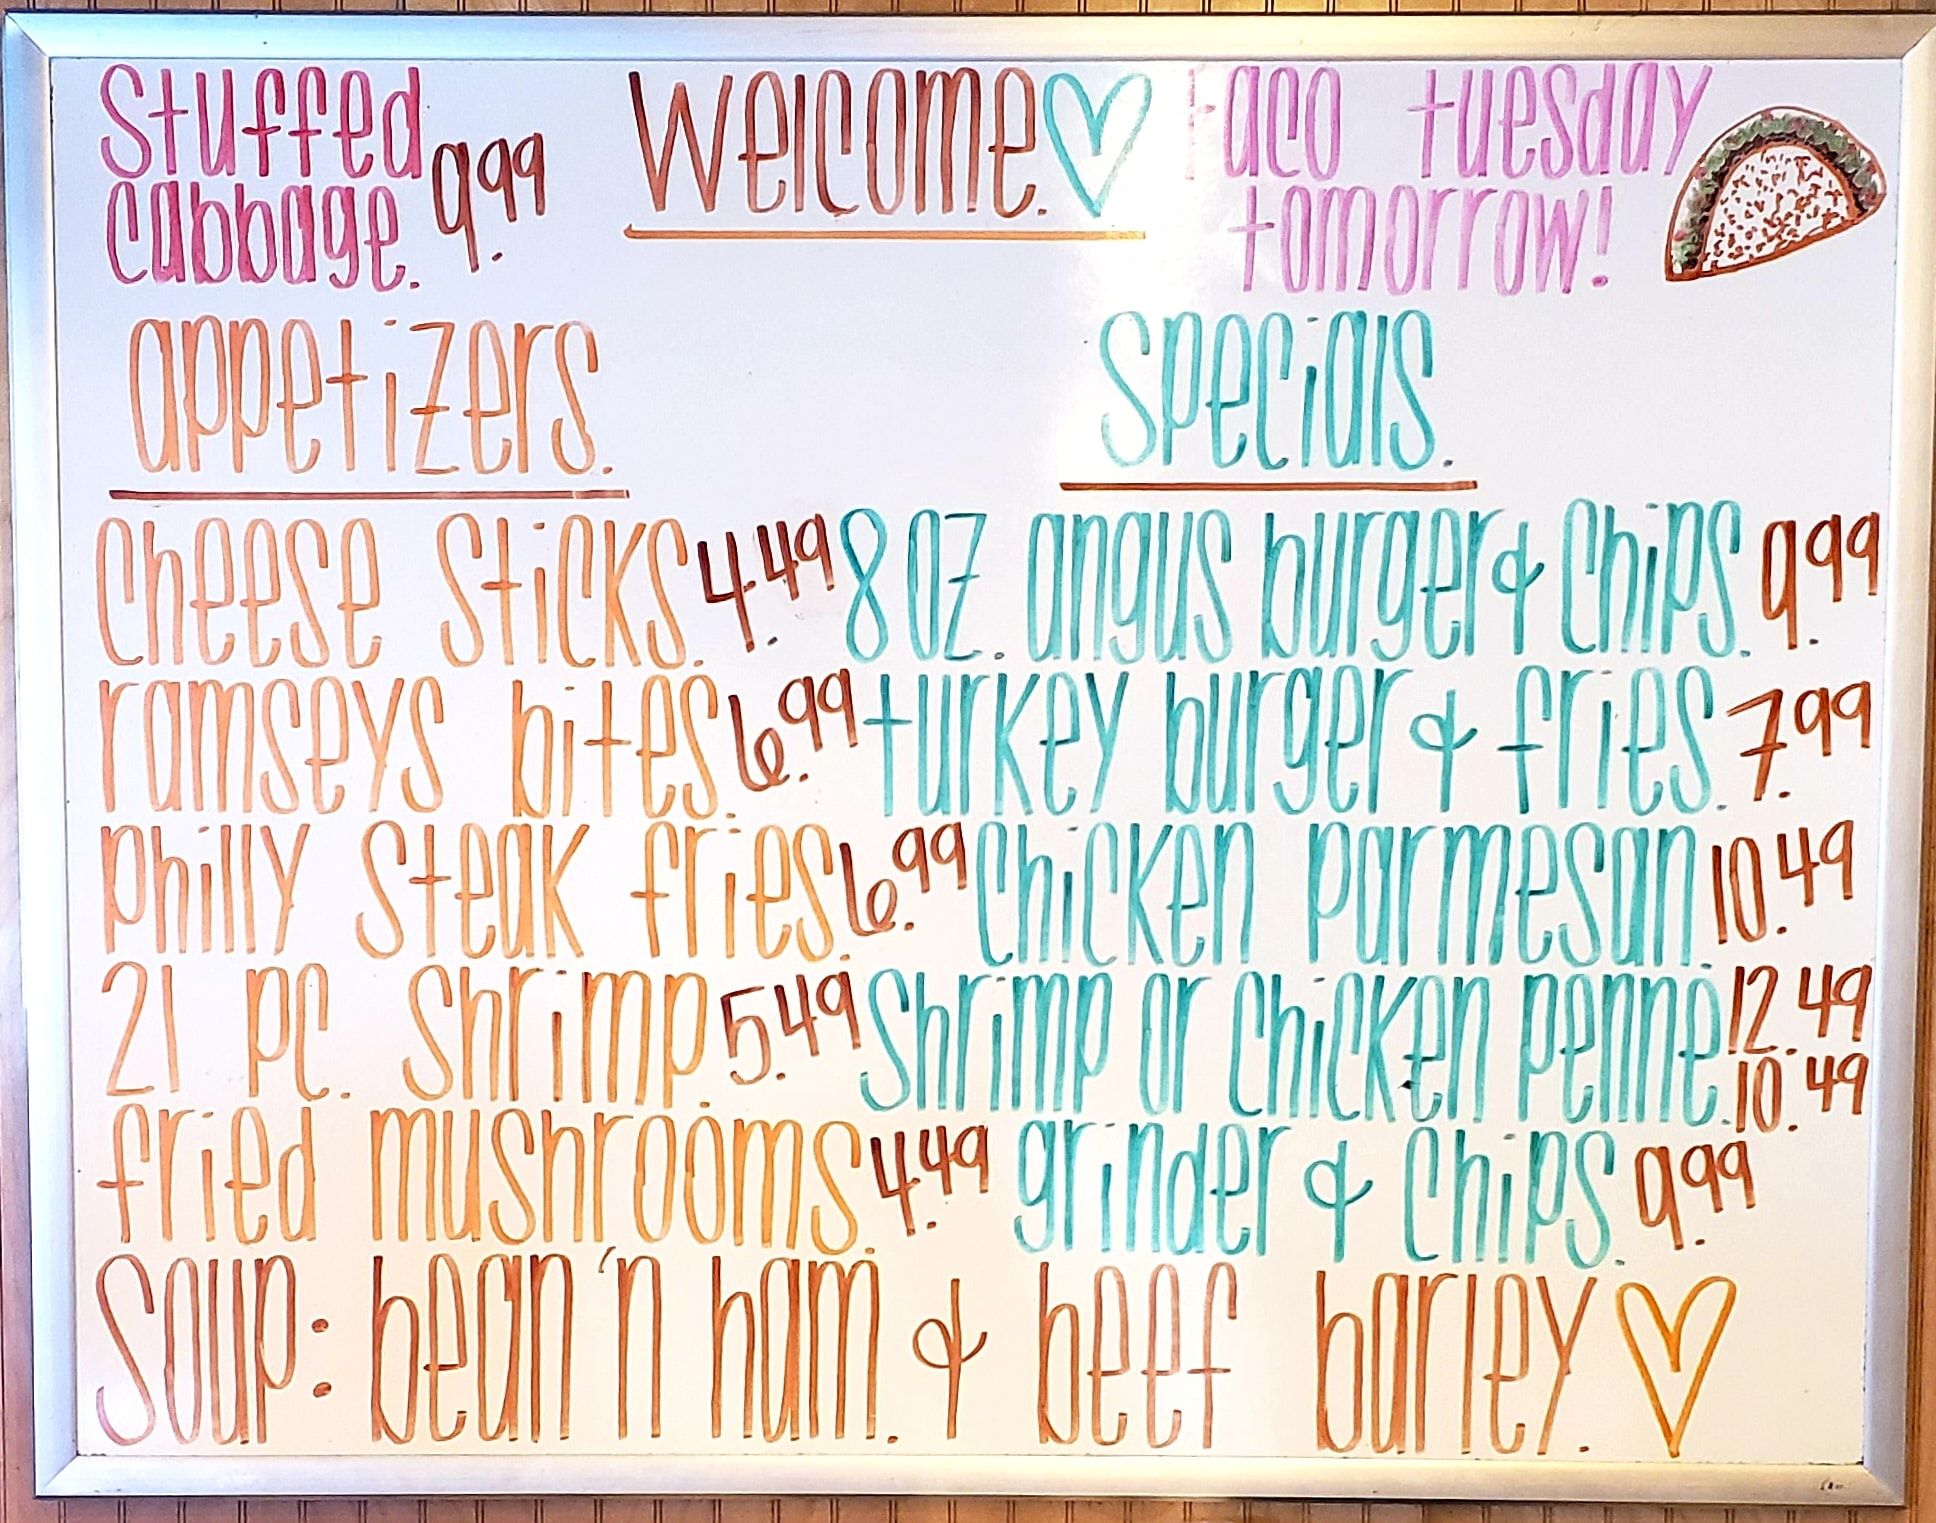 stuffed
cabbage. 9.99
welcome.
taco tuesday
tomorrow!
appetizers.
cheese sticks. 4.49
ramseys bites. 6.99
philly steak fries. 6.99
21 pc. shrimp. 5.49
fried mushrooms. 4.49
specials.
8 oz. angus burger & chips. 9.99
turkey burger & fries. 7.99
chicken parmesan. 10.49
shrimp or chicken penne. 12.49
10.49
grinder & chips. 9.99
soup: bean 'n ham. & beef barley.